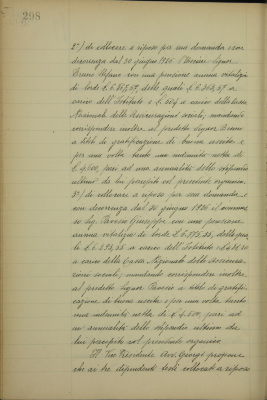 298
2°/ di collocare a riposo per sua domanda e con
decorrenza dal 30 giugno 1926 l'Usciere Signor
Bruno Stefano con una pensione annua vitalizia
di lorde £. 6.867,57, delle quali £. 6.363,57 a
carico dell'Istituto e £. 504 a carico della Cassa
Nazionale delle Assicurazioni sociali, mandando
corrispondere inoltre al predetto Signor Bruno
a titolo di gratificazione di buona uscita e
per una volta tanto una indennità netta di
£. 4.500, pari ad una annualità dello stipendio
ultimo da lui percepito col presente organico.
3°/ di collocare a riposo per sua domanda e
con decorrenza dal 30 giugno 1926 il commesso
sig. Giuseppe con una pensione
annua vitalizia di lorde £. delle quali
£. a carico dell'Istituto e £.
a carico della Cassa Nazionale delle Assicura-
zioni sociali; mandando corrispondere inoltre
al predetto Signor a titolo di gratifi-
cazione di buona uscita e per una volta tanto
una indennità netta di £. 4.500, pari ad
un'annualità dello stipendio ultimo da
lui percepito col presente organico.
Il Vice Presidente Avv. Giorgi propone
che ai tre dipendenti testé collocati a riposo